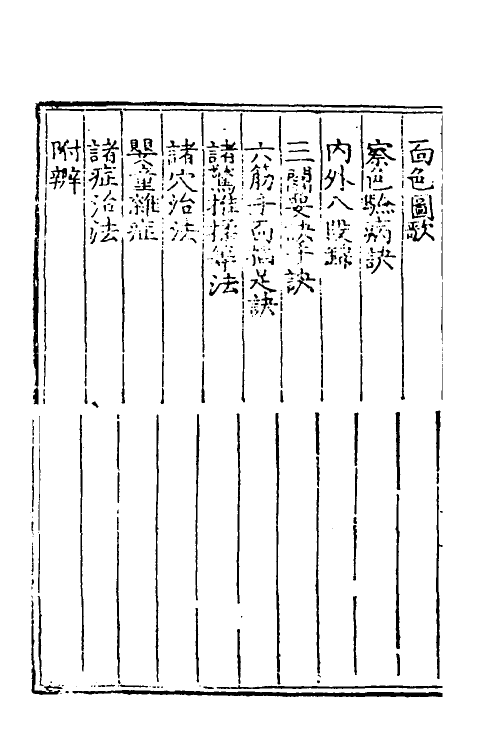 面色圖歌
察色驗病訣
內外八段錦
三關要訣手訣
六筋手面掐足訣
諸驚推揉等法
諸穴治法
嬰童雜症
諸症治法
附辨